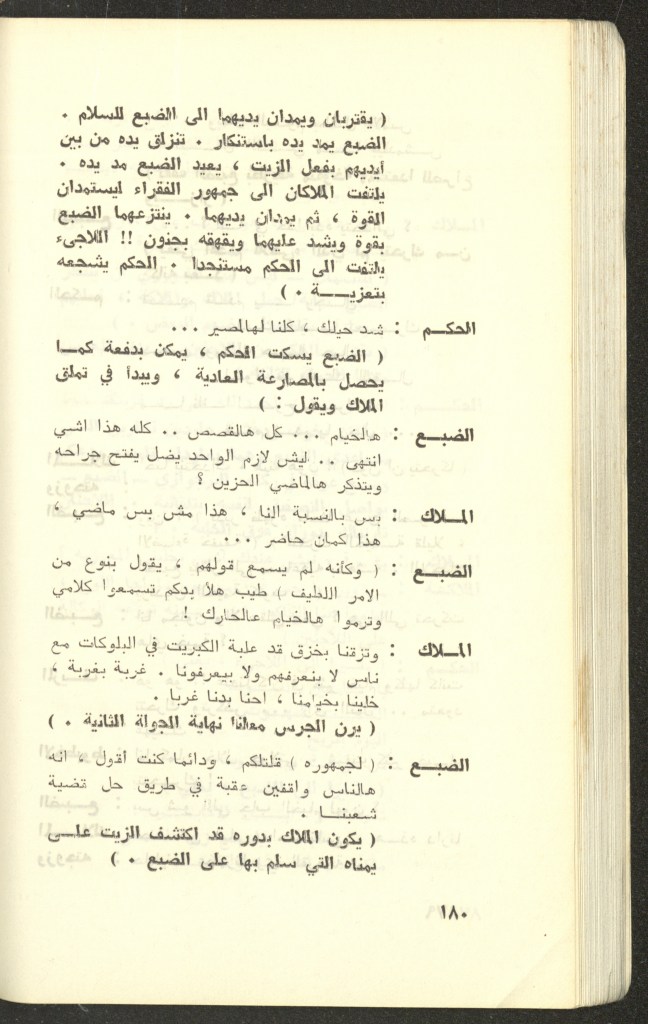 ( يقتربان ويمدان يديهما الى الضبع للسلام .
الضبع يمد يده باستنكار . تنزلق يده من بين
أيديهم بفعل الزيت ، يعيد الضبع مد يده .
يلتفت الملاكان الى جمهور الفقراء ليستمدان
القوة ، ثم يمدان يديهما . ينتزعهما الضبع
بقوة ويشد عليهما ويقهقه بجنون !! الملاجىء
يلتفت الى الحكم مستنجدا . الحكم يشجعه
بتعزيــــة . )
الحكــم : شد حيلك ، كلنا لهالمصير ...
( الضبع يسكت الحكم ، يمكن بدفعة كمــا
يحصل بالمصارعة العادية ، ويبدأ في تملق
الملاك ويقول : )
الضبــع : هالخيام ... كل هالقصص .. كله هذا اشي
انتهى .. ليش لازم الواحد يضل يفتح جراحه
ويتذكر هالماضي الحزين ؟
المــلاك : بس بالنسبة النا ، هذا مش بس ماضي ،
هذا كمان حاضر ...
الضبــع : ( وكأنه لم يسمع قولهم ، يقول بنوع من
الامر اللطيف ) طيب هلأ بدكم تسمعوا كلامي
وترموا هالخيام عالحارك !
المــلاك : وتزقنا بخزق قد علبة الكبريت في البلوكات مع
ناس لا بنعرفهم ولا بيعرفونا . غربة بغربة ،
خلينا بخيامنا ، احنا بدنا غربا .
( يرن الجرس معلنا نهاية الجولة الثانية . )
الضبــع : ( لجمهوره ) قلتلكم ، ودائما كنت أقول ، انه
هالناس واقفين عقبة في طريق حل قضية
شعبنــا .
( يكون الملاك بدوره قد اكتشف الزيت علــى
يمناه التي سلم بها على الضبع . )
١٨٠